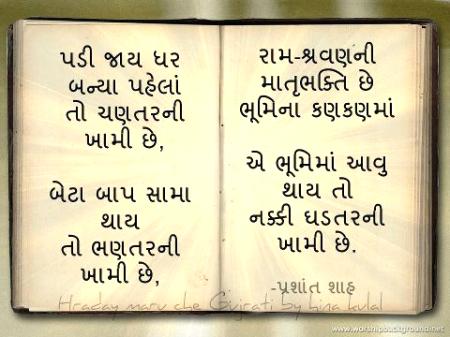 પડી જાય ઘર
બન્યા પહેલાં
તો ચણતરની
ખામી છે,
બેટા બાપ સામા
થાય
તો ભણતરની
ખામી છે,
રામ-શ્રવણની
માતૃભક્તિ છે
ભૂમિના કણકણમાં
એ ભૂમિમાં આવુ
થાય તો
નક્કી ઘડતરની
ખામી છે.
-પ્રશાંત શાહ
Hraday maru che Gujrati by hina kulal
www.worshipbackground.net